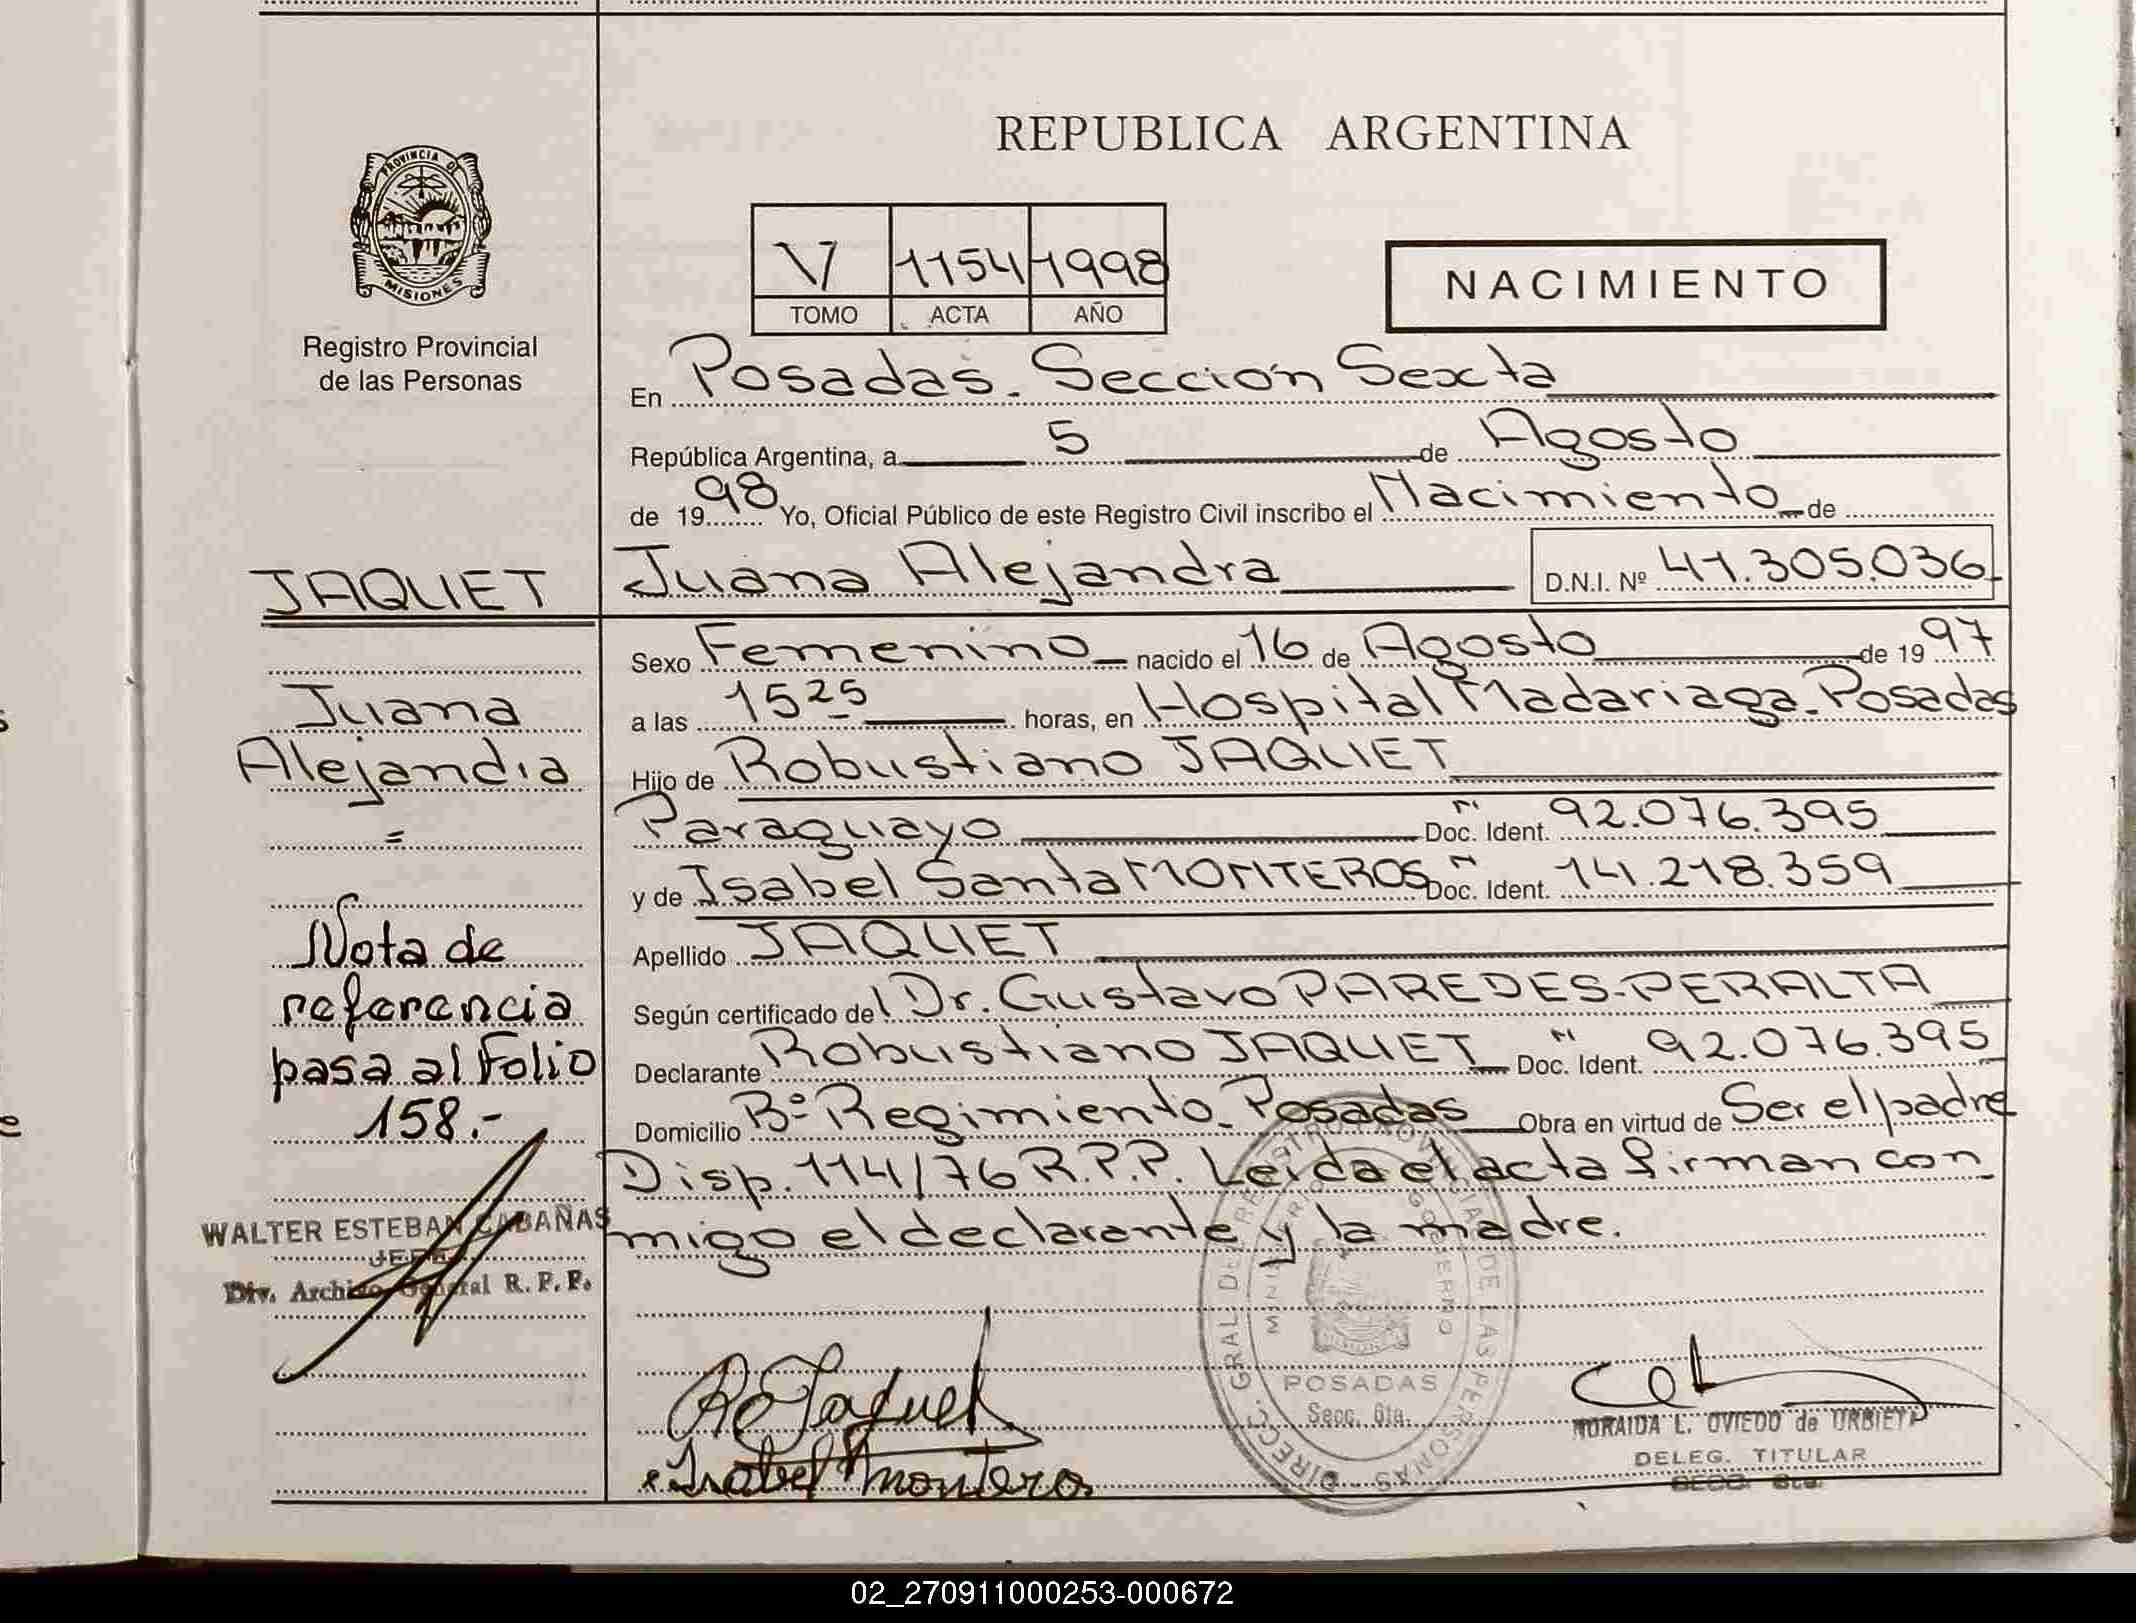 REPUBLICA ARGENTINA
PROVINCIA DE
MISIONES
Registro Provincial
de las Personas
V 1154 1998
TOMO ACTA AÑO
NACIMIENTO
En Posadas. Sección Sexta
República Argentina, a 5 de Agosto
de 1998 Yo, Oficial Público de este Registro Civil inscribo el Nacimiento de
JAQUET Juana Alejandra D.N.I. Nº 41.305.036
Sexo Femenino nacido el 16 de Agosto de 1997
a las 15 25 horas, en Hospital Madariaga-Posadas
Hijo de Robustiano JAQUET
Paraguayo Doc. Ident. Nº 92.076.395
y de Isabel Santa MONTEROS Doc. Ident. Nº 14.218.359
Apellido JAQUET
Según certificado del Dr. Gustavo PAREDES-PERALTA
Declarante Robustiano JAQUET Doc. Ident. Nº 92.076.395
Domicilio Bº Regimiento-Posadas Obra en virtud de Ser el padre
Disp. 114/76 R.P.P. Leída el acta firman con
migo el declarante y la madre.
Juana
Alejandra
=
Nota de
referencia
pasa al Folio
158.-
WALTER ESTEBAN CABAÑAS
JEFE
Div. Archivo General R.P.P.
Jaquet
Isabel Montero
DIRECC. GRAL DEL REGISTRO PROVINCIAL DE LAS PERSONAS
MINISTERIO GOBIERNO
POSADAS
Secc. 6ta.
NORAIDA L. OVIEDO de URBIETA
DELEG. TITULAR
SECC. 6ta.
02_270911000253-000672